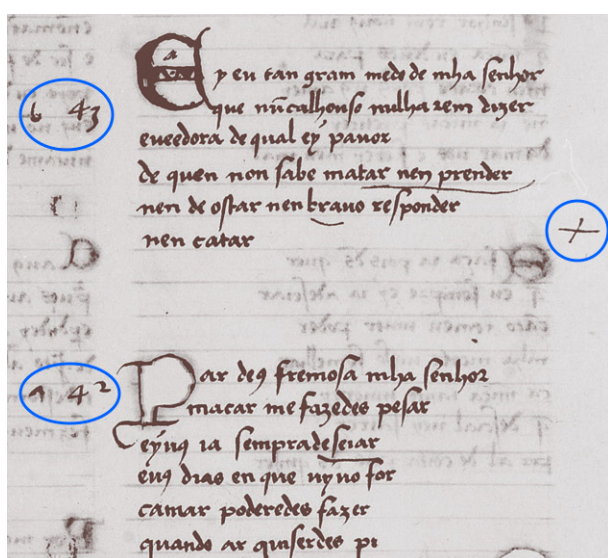 b 43
Ey eu tan gram medo de mha senhor
que nũcalhouso nulha rem dizer
eveedora de qual ey pavor
de quen non sabe matar nen prender
nen de ostar nen bravo responder
nen catar
+
a 42
Par de9 fremosa mha senhor
macar me fazedes pesar
ey
ia sempradeseiar
dias en que
for
camar poderedes fazer
quando ar quiserdes